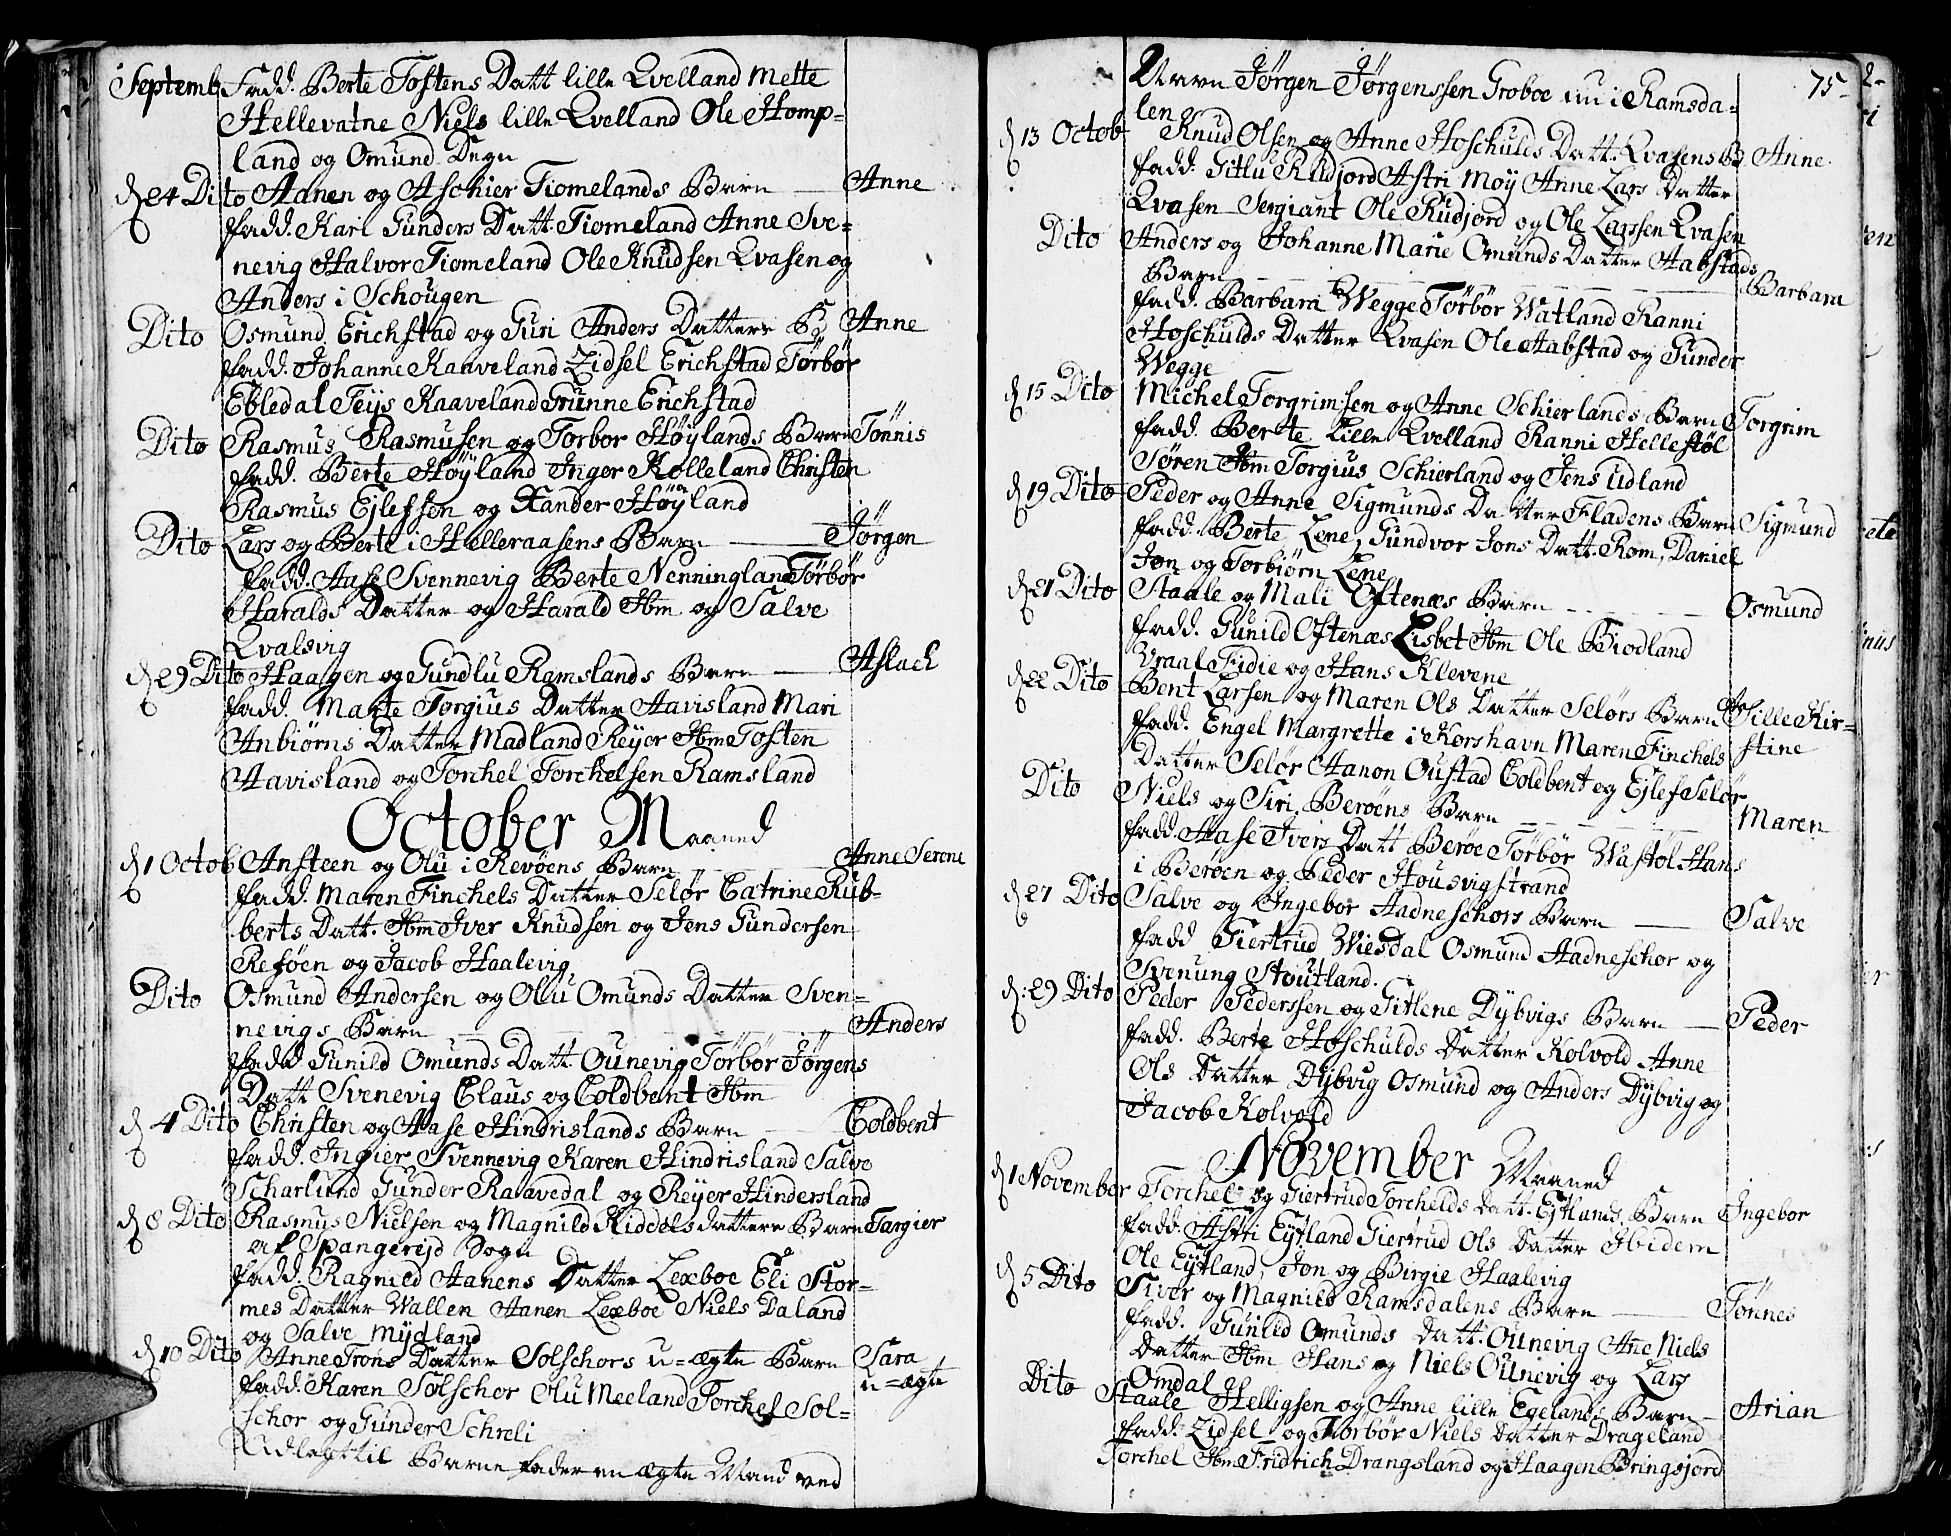 Septemb. Fadd. Berte Tostens Datt lille Qvelland Mette
Hellevatne Niels lille Qvelland Ole Homp=
land og Omund Degn
d 24 Dito Aanen og Aschier Tiomelands Barn — Anne
Fadd. Kari Gunders Datt. Tiomeland Anne Sve=
nevig Halvor Tiomeland Ole Knudsen Qvasen og
Anders i Schougen
Dito Osmund Erichstad og Guri Anders Datters B Anne
Fadd. Johanne Kaaveland Zidsel Erichstad Törbör
Ebledal Teijs Kaaveland Grunne Erichstad
Dito Rasmus Rasmusen og Torbor Höÿlands Barn Tönnis
Fadd. Berte Höÿland Inger Kolleland Christen
Rasmus Ejlefsen og Xander Höÿland
Dito Lars og Berte i Helleraasens Barn — Jörgen
Fadd. Aase Svennevig Berte Nenningland Törbör
Haralds Datter og Harald Ibm og Salve
Qvalsvig
d 29 Dito Haagen og Gundlu Ramslands Barn — Aslach
Fadd. Marte Torgius Datter Aavisland Mari
Anbiörns Datter Madland Reÿer Ibm Tosten
Aavisland og Torchel Torchelsen Ramsland
October Maaned
d 1 Octob Ansteen og Olu i Revöens Barn — Anne Serene
Fadd. Maren Finchels Datter Selör Catrine Rub-
berts Datt. Ibm Iver Knudsen og Jens Gundersen
Reföen og Jacob Haalevig
Dito Osmund Andersen og Ollu Omunds Datter Sven=
nevigs Barn — Anders
Fadd Gunild Omunds Datt. Ounevig Törbör Jörgens
Datt Svenevig Claus og Coldbent Ibm
d 4 Dito Christen og Aase Hindrislands Barn — Coldbent
Fadd. Ingier Svennevig Karen Hindrisland Salve
Scharlund Gunder Raavedal og Reÿer Hindersland
d 8 Dito Rasmus Nielsen og Magnild Kiddels datters Barn Targier
af Spangerejd Sogn
Fadd. Ragnild Aanens Datter Lexboe Eli Stor=
mes Datter Wallen Aanen Lexboe Niels Daland
og Salve Mÿdland
d 10 Dito Anne Trons Datter Solschors u=ægte Barn Sara
u=ægte
Fadd. Karen Solschor Olu Meeland Torchel Sol=
schor og Gunder Schreli
Udlagt til Barne fader en ægte Mand ved
75
Navn Jörgen Jörgenssen Groboe nu i Ramsda=
len
d 13 Octob Knud Olsen og Anne Hoschulds Datt. Qvasens B. Anne
Fadd. Gitlu Rudjord Astri Moÿ Anne Lars Datter
Qvasen Sergiant Ole Rudjord og Ole Larssen Qvasen
Dito Anders og Johanne Marie Omunds Datter Aabstads
Barn — Barbara
Fadd. Barbara Wegge Törbör Watland Ranni
Hoschulds Datter Qvasen Ole Aabstad og Gunder
Wegge
d 15 Dito Michel Torgrimsen og Anne Schierlands Barn Torgrim
Fadd. Berte Lille Qvelland Ranni Hellestöl
Sören Ibm Torgius Schierland og Jens Udland
d 19 Dito Peder og Anne Sigmunds Datter Fladens Barn Sigmund
Fadd. Berte Lene, Gundvor Jons Datt. Rom, Daniel
Jon og Torbiörn Lene
d 21 Dito Staale og Mali Oftenæs Barn — Osmund
Fadd. Gunild Oftenæs Lisbet Ibm Ole Biodland
Vraal Fidie og Hans Klevene
d 22 Dito Bent Larsen og Maren Ols Datter Selörs Barn Sille Kir=
stine
Fadd. Engel Margrette i Korshavn Maren Finchels
Datter Selör Aanon Oustad Coldbent og Ejlef Selör
Dito Niels og Siri Beröens Barn — Maren
Fadd. Aase Ivers Datt Beröe Törbör Wastöl Hans
i Beröen og Peder Housvigstrand
d 27 Dito Salve og Ingebor Aadneschors Barn — Salve
Fadd Giertrud Wiesdal Osmund Aadneschor og
Svenung Stoutland.
d: 29 Dito Peder Pederssen og Gitlene Dÿbvigs Barn — Peder
Fadd. Berte Hoschulds Datter Kolvold Anne
Ols Datter Dÿbvig Osmund og Anders Dÿbvig og
Jacob Kolvold
November Maaned
d 1 November Torchel og Giertrud Torchelds Datt. Ejtlands Barn Ingebor
Fadd. Astri Eÿtland Giertrud Ols Datter Ibidem
Ole Eÿtland, Jon og Birgie Haalevig
d 5 Dito Siver og Magnild Ramsdalens Barn — Tönnes
Fadd. Gunild Omunds Datt. Ounevig Ane Niels
Datter Ibm Hans og Niels Ounevig og Lars
Omdal
Dito Staale Helligsen og Anne lille Egelands Barn — Arian
Fadd. Zidsel og Törbör Niels Datter Drageland
Torchel Ibm Fridrich Drangsland og Haagen Bringsjord